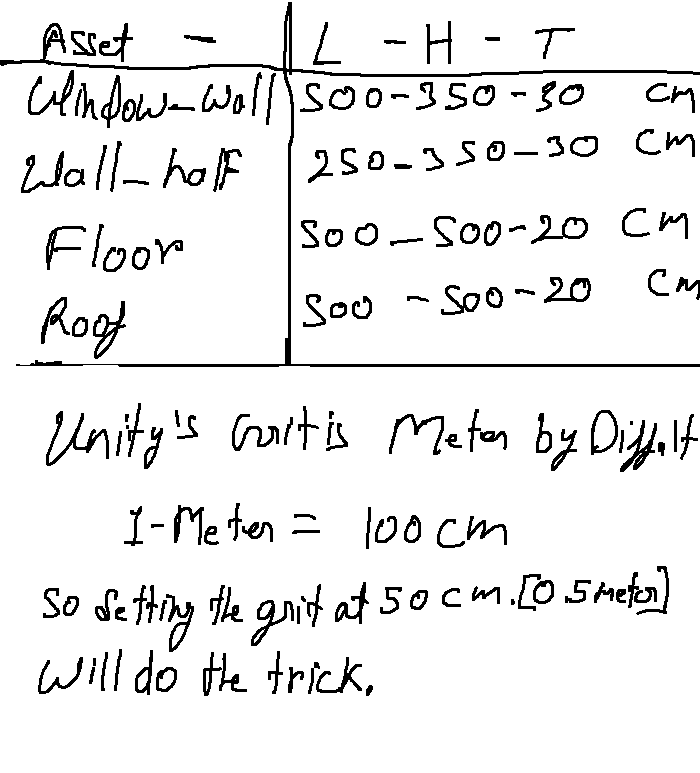 Asset - L - H - T
Window-Wall 500-350-30 cm
Wall-half 250-350-30 cm
Floor 500-500-20 cm
Roof 500-500-20 cm
Unity's Grit is Meter by Diffult
1-Meter = 100 cm
So Setting the grit at 50 cm.[0.5 Meter]
Will do the trick.